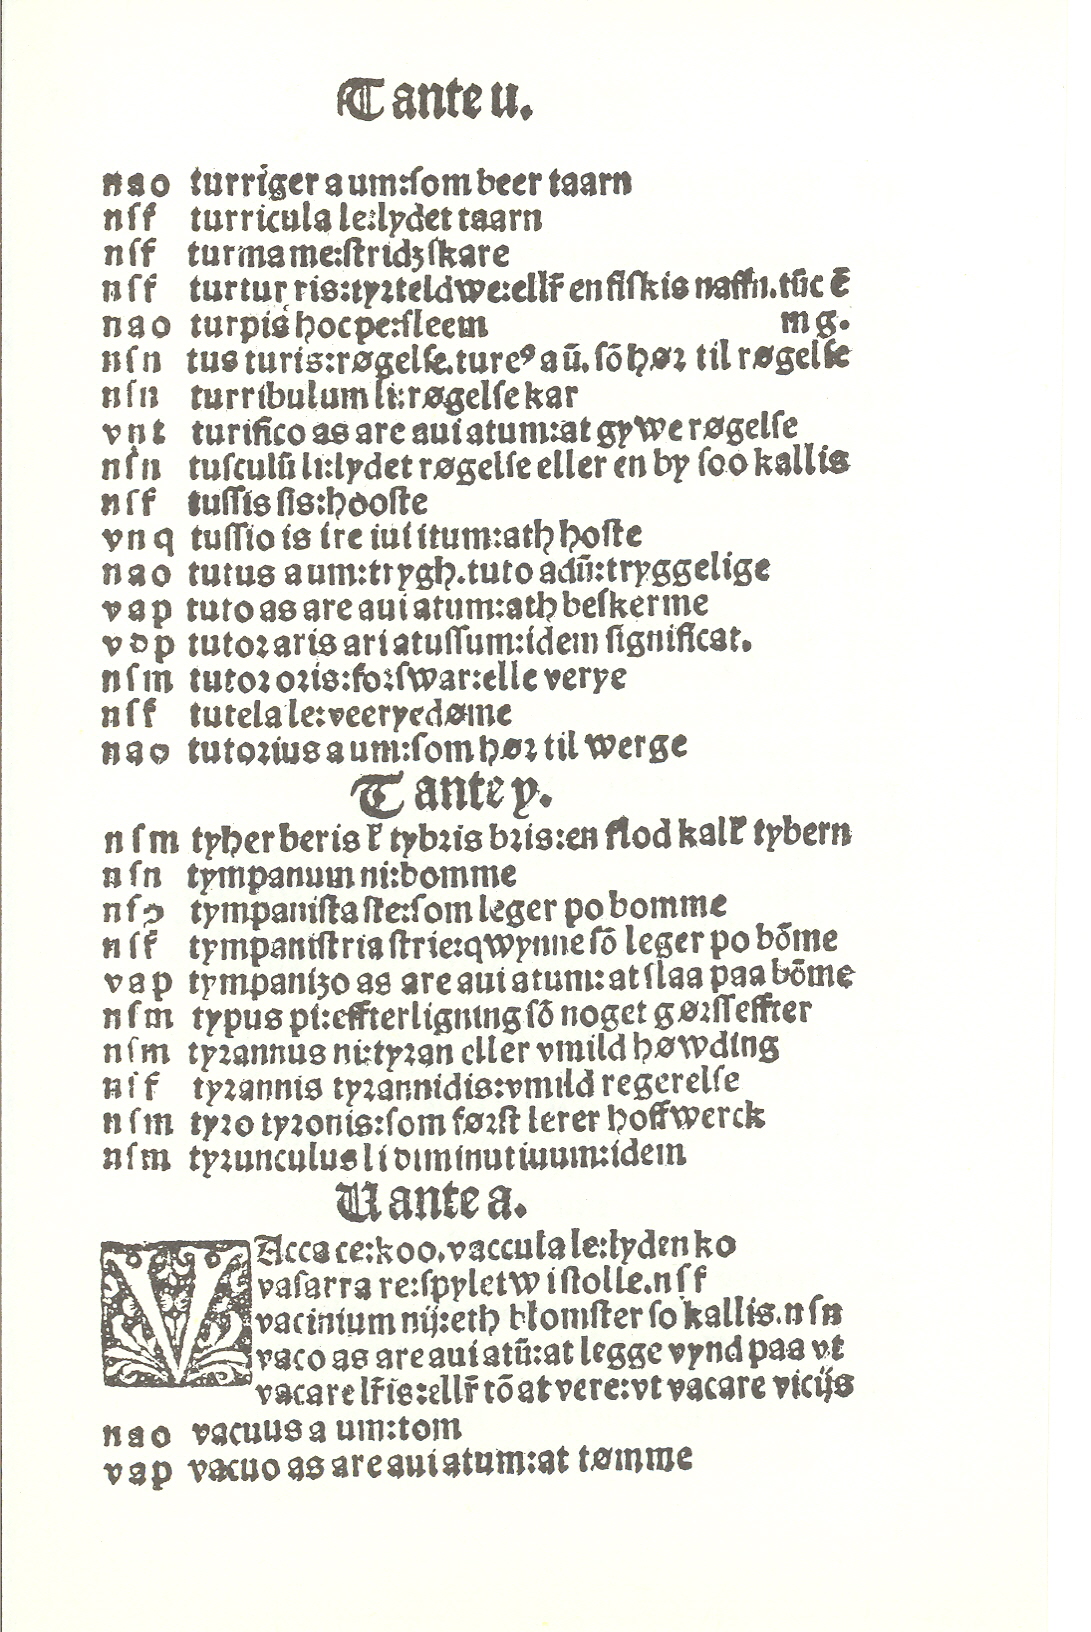 T ante u.
nao turriger a um:ſom beer taarn
nſf turricula le:lydet taarn
nſf turma me:ſtridʒ ſkare
nſf turtur ris:tyꝛteldwe:ellr̄ en fiſkis naffn. tūc ē
nao turpis hoc pe:ſleem mg.
nſn tus turis:røgelſe.tureꝰ a ū. ſō høꝛ til røgelſe
nſn turribulum li:røgelſe kar
vnt turifico as are aui atum:at gywe røgelſe
nſn tuſculū li:lydet røgelſe eller en by ſoo kallis
nſf tuſſis ſis:hooſte
vnq tuſſio is ire iui itum:ath hoſte
nao tutus a um:trygh.tuto adū:tryggelige
vap tuto as are aui atum:ath beſkerme
vdp tutoꝛ aris ari atuſſum:idem ſignificat.
nſm tutoꝛ oꝛis:foꝛſwar:elle verye
nſf tutela le:veeryedøme
nao tutoꝛius a um:ſom høꝛ til werge
T ante y.
nſm tyber beris ꝉ tybꝛis bꝛis:en flod kalꝉ tybern
nſn tympanum ni:bomme
nſɔ tympaniſta ſte:ſom leger po bomme
nſf tympaniſtria ſtrie:qwynne ſō leger po bōme
vap tympaniʒo as are aui atum:at ſlaa paa bōme
nſm typus pi:effterligning ſō noget gøꝛſſ effter
nſm tyꝛannus ni:tyꝛan eller vmild høwding
nſf tyꝛannis tyꝛannidis:vmild regerelſe
nſm tyꝛo tyꝛonis:ſom føꝛſt lerer hoffwerck
nſm tyꝛunculus li diminutiuum:idem
U ante a.
VAcca ce:koo.vaccula le:lyden ko
vaſarra re:ſpyletw i ſtolle.nſf
vacinium nij:eth blomſter ſo kallis.nſn
vaco as are aui atū:at legge vynd paa vt
vacare lr̄is:ellr̄ tō at vere:vt vacare vicijs
nao vacuus a um:tom
vap vacuo as are aui atum:at tømme